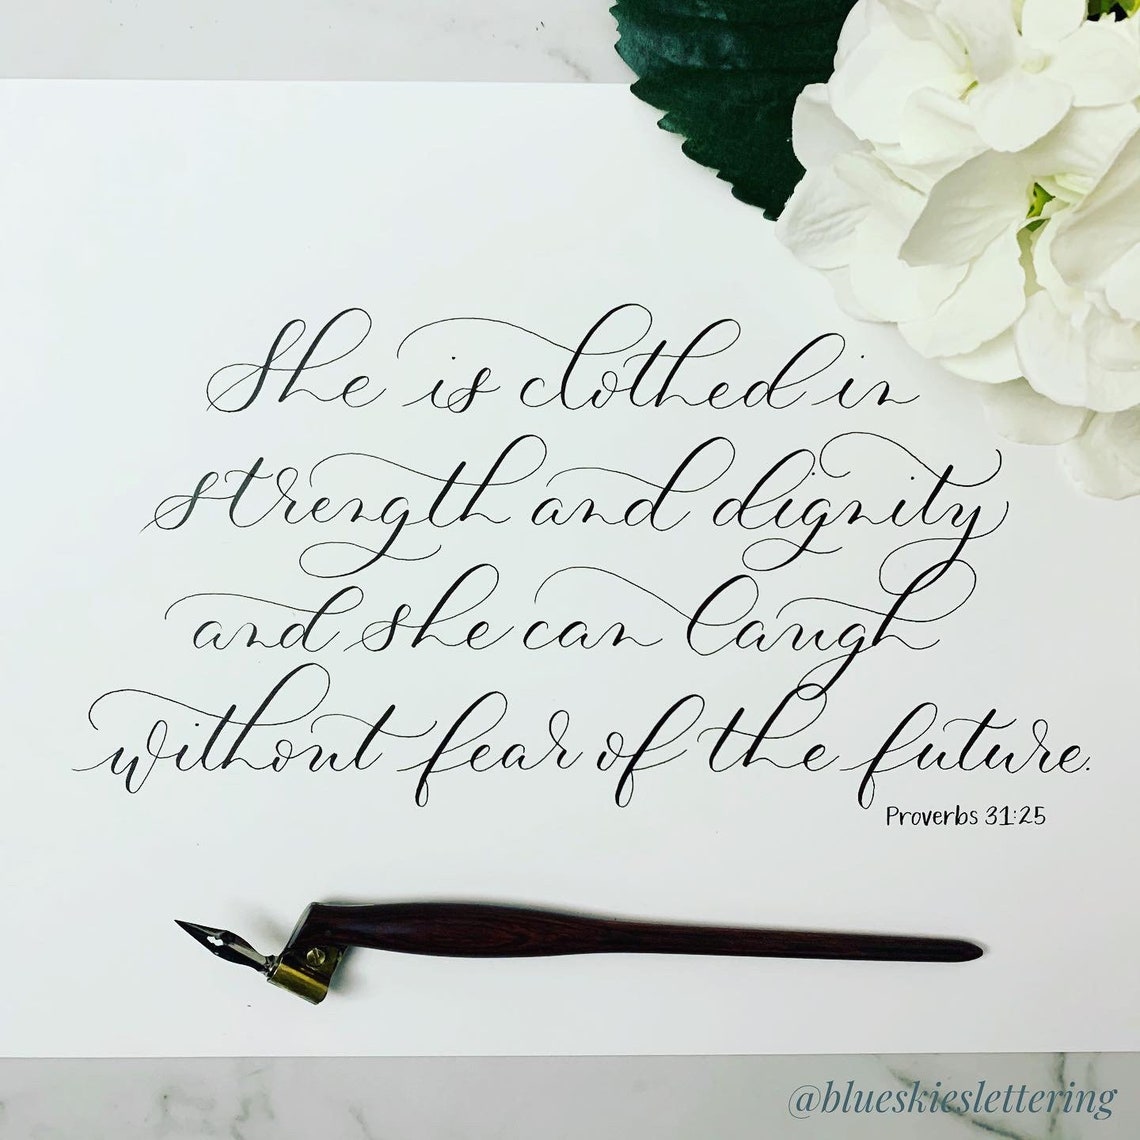 She is clothed in
strength and dignity
and she can laugh
without fear of the future.
Proverbs 31:25
@blueskieslettering